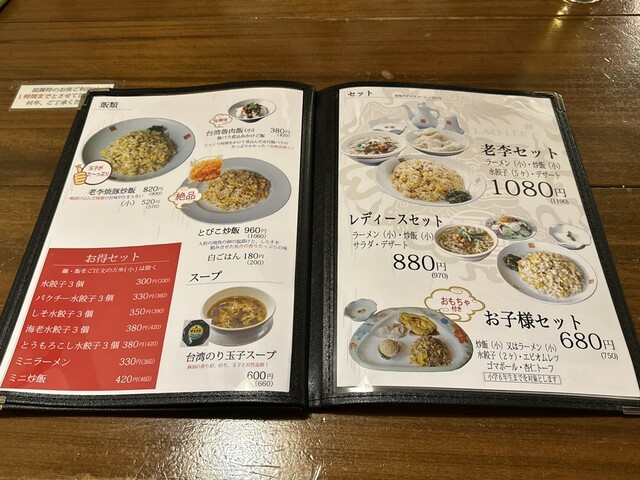 飯類
台湾魯肉飯(小) 380円
(420)
豚バラ煮込みかけご飯
老李焼豚炒飯 820円
(900)
(小) 520円
(570)
絶品
とびこ炒飯 960円
(1060)
白ごはん 180円
(200)
お得セット
麺・飯をご注文の方※(小)は除く
水餃子3個 300円(330)
パクチー水餃子3個 330円(360)
しそ水餃子3個 350円(390)
海老水餃子3個 380円(420)
とうもろこし水餃子3個 380円(420)
ミニラーメン 330円(360)
ミニ炒飯 420円(460)
スープ
台湾のり玉子スープ
600円
(660)
セット
老李セット
ラーメン(小)・炒飯(小)
水餃子(5ヶ)・デザート
1080円
(1190)
レディースセット
ラーメン(小)・炒飯(小)
サラダ・デザート
880円
(970)
おもちゃ
付き
お子様セット
680円
(750)
炒飯(小)又はラーメン(小)
水餃子(2ヶ)・エビオムレツ
ゴマボール・杏仁トーフ
小学6年生までを対象とします